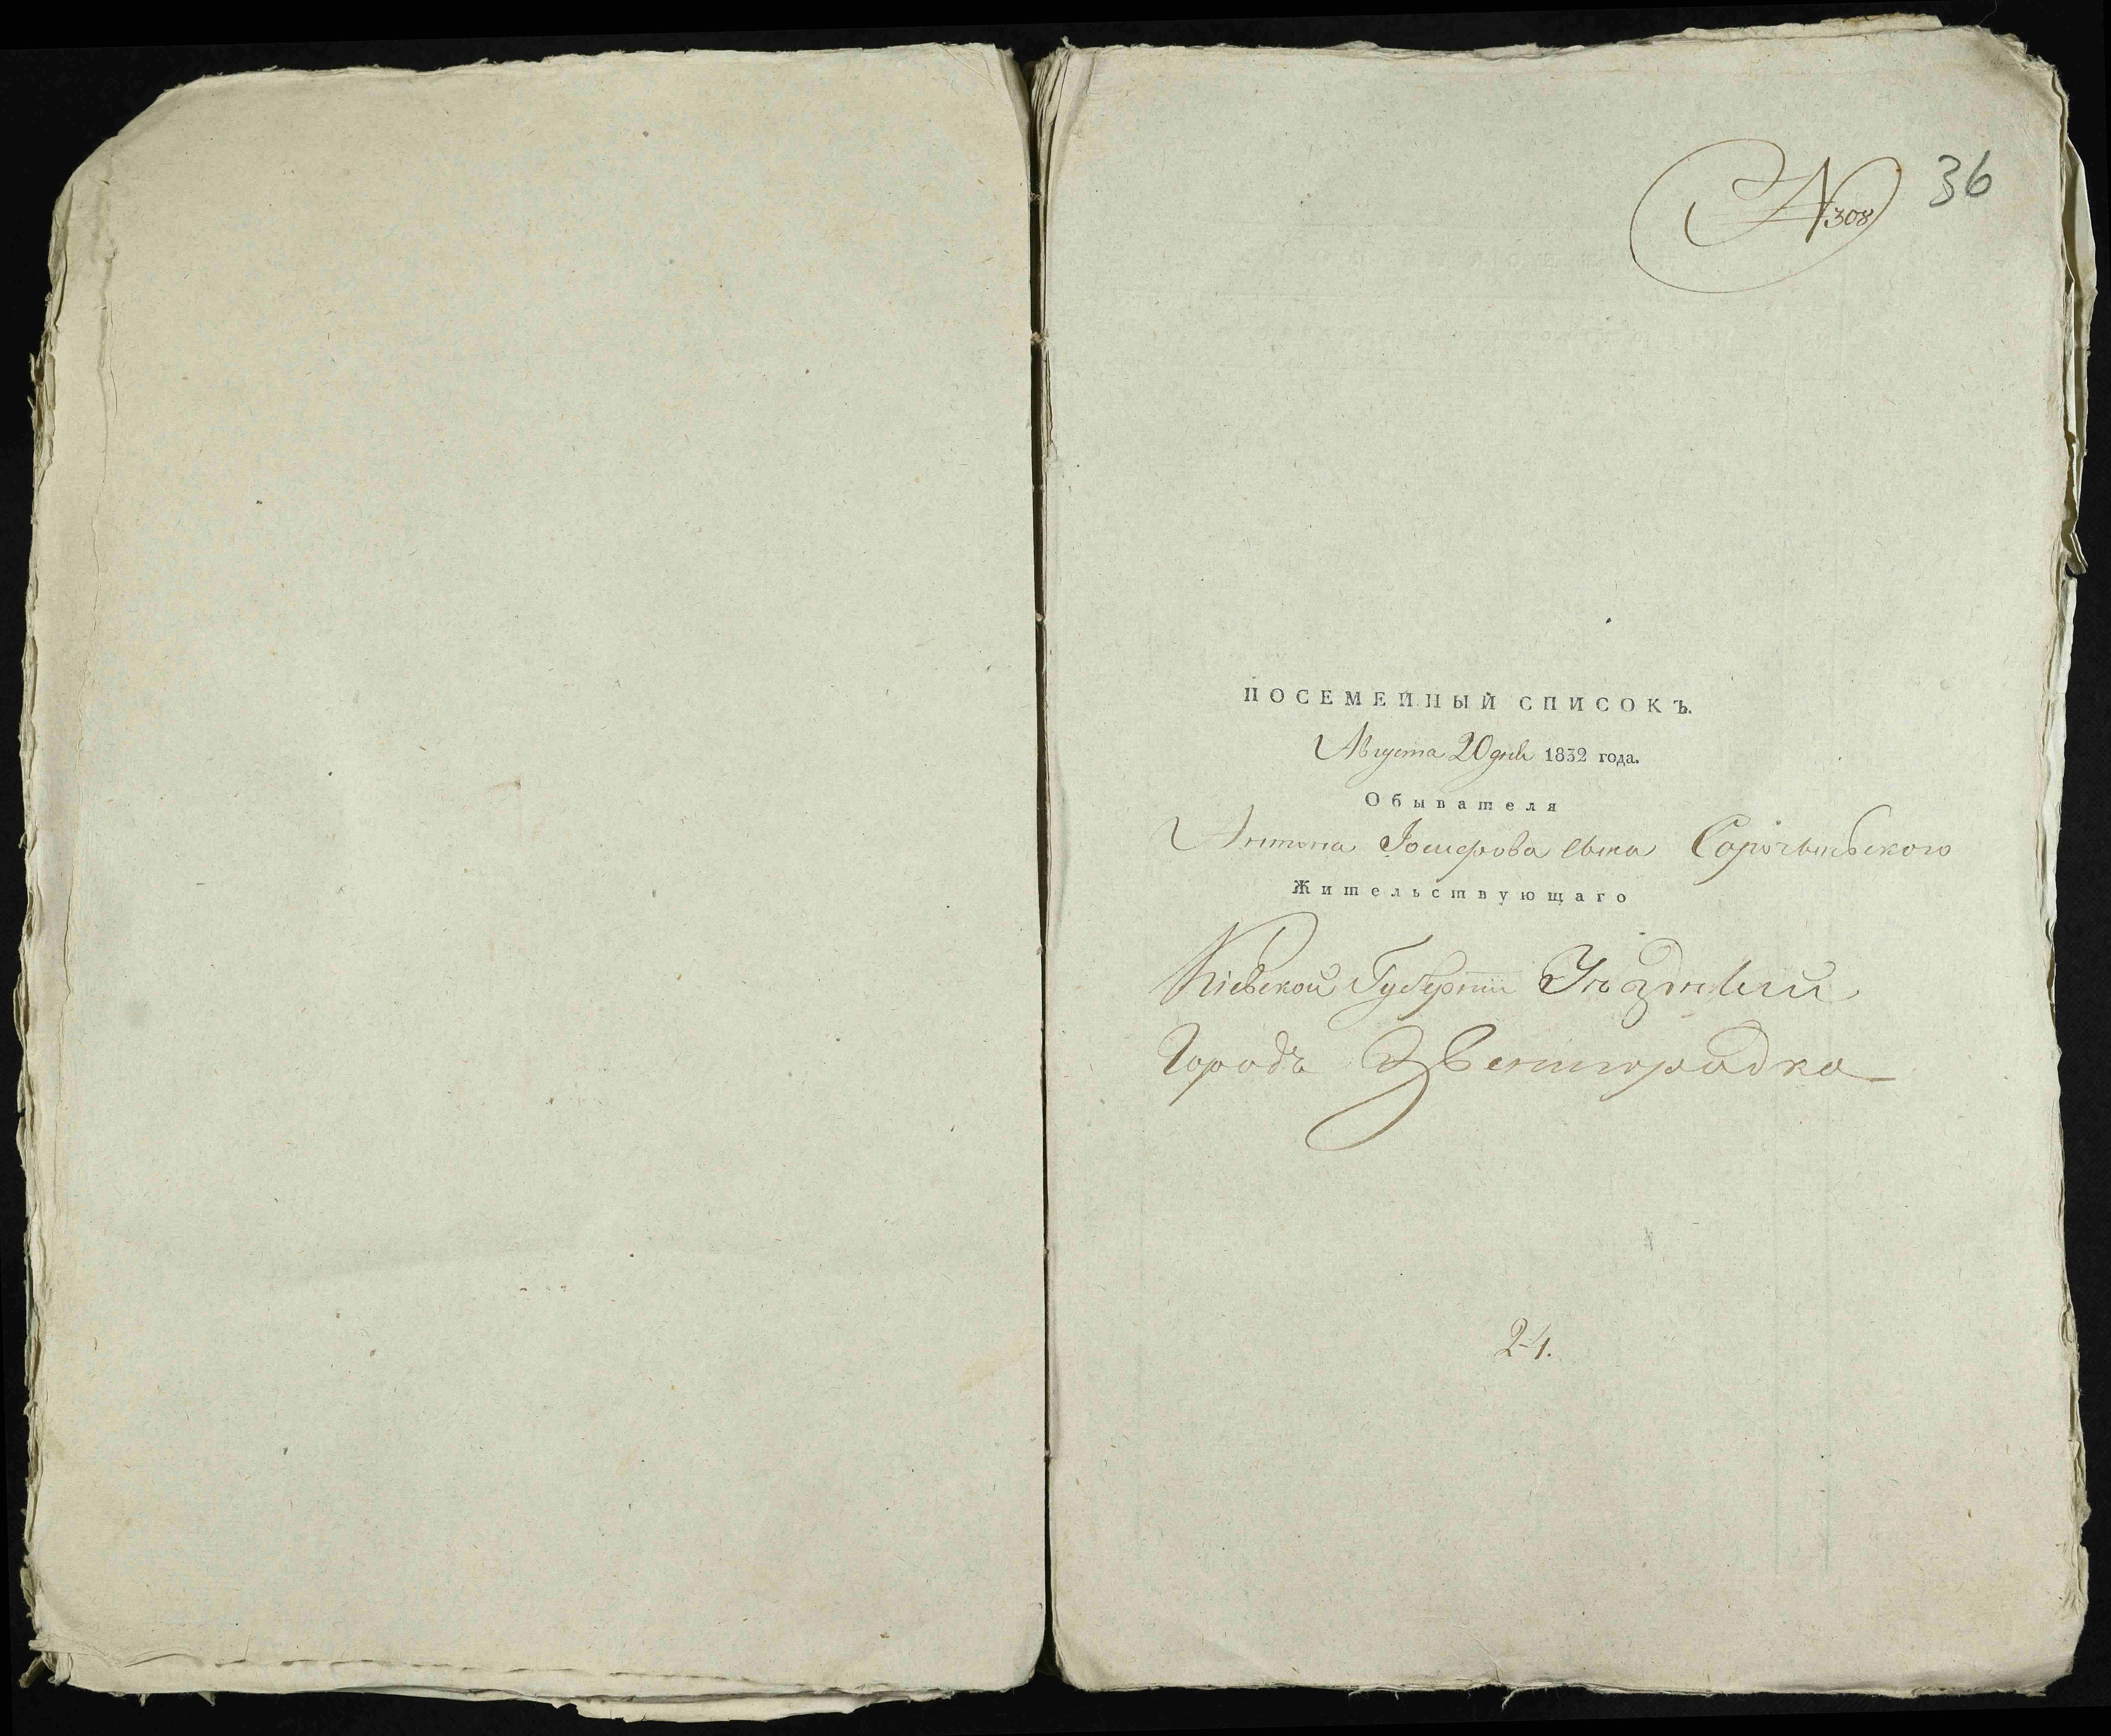 N 308
36
ПОСЕМЕЙНЫЙ СПИСОКЪ.
Августа 20 дня 1832 года.
Обывателя
Антона Іосифова сына
Жительствующаго
Кіевской Губерніи Уѣздный
Городъ Звенигородка
24.